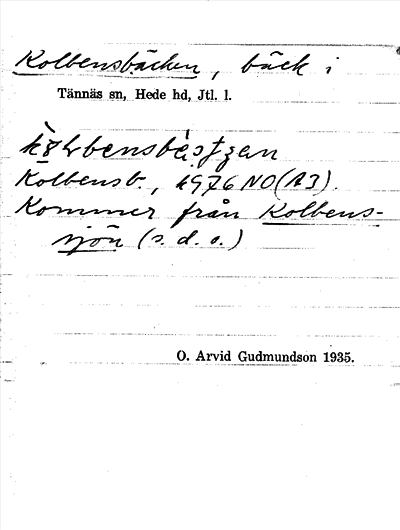 Kolbensbäcken, bäck i
Tännäs sn, Hede hd, Jtl. l.
Kolbensb., k976NO(A3).
Kommer från Kolbens-
sjön (s. d. o.)
O. Arvid Gudmundson 1935.